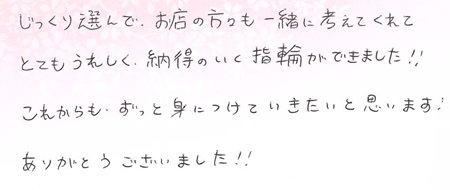 じっくり選んで、お店の方々も一緒に考えてくれて
とてもうれしく、納得のいく指輪ができました!!
これからも、ずっと身につけていきたいと思います!
ありがとうございました!!